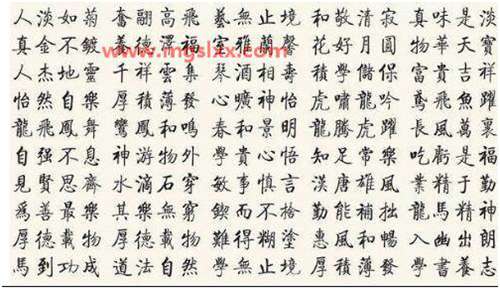 人淡如菊 奮翮高飛 藝無止境 和敬清寂 真味是淡
真金不鍍 美德澤福 室雅蘭馨 花好月圓 物華天寶
人杰地靈 千祥雲集 琴酒相壽 學儲保 富貴吉祥
怡然自樂 厚積薄發 心曠神怡 虎嘯龍吟 鳶飛魚躍
龍飛鳳舞 鸞鳳和鳴 春和景明 龍騰虎躍 長風萬裏
自强不息 神游物外 學貴心悟 知足常樂 吃虧是福
見賢思齊 水滴石穿 敏事慎言 漢唐雄風 業精于勤
爲善最樂 其樂無窮 鍥而不捨 勤能補拙 龍馬精神
厚德載物 厚德載物 難得糊塗 惠風和暢 入幽出朗
馬到功成 道法自然 學無止境 厚積薄發 學書養志
www.imgslxx.com
www.imgslxx.com